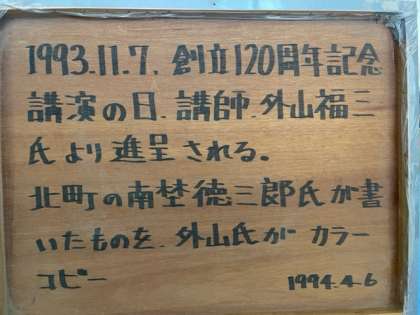 1993.11.7. 創立120周年記念
講演の日. 講師. 外山福三
氏より進呈される。
北町の南埜徳三郎氏が書
いたものを. 外山氏が カラー
コピー 1994.4.6